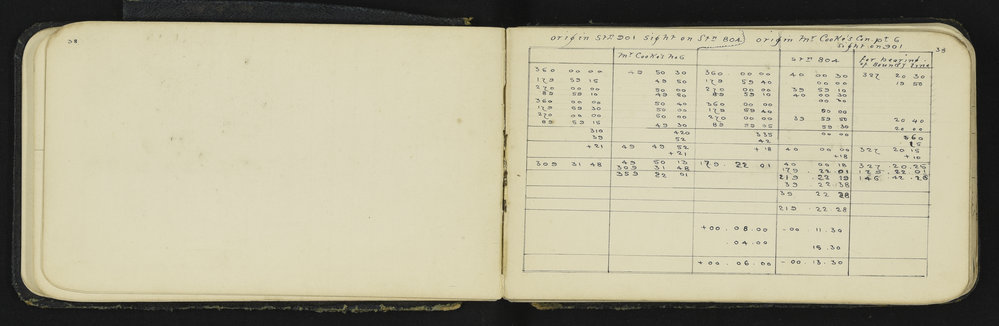 38
origin Stn 901 Sight on Stn 804 origin Mr Cooke's Con. pt 6
Sight on 901
38
Mr Cooke's No6 Stn 804 for bearing
of Boundy Line
360 00 00 49 50 30 360 00 00 40 00 30 327 20 30
179 59 15 49 50 179 59 40 00 00 19 50
270 00 00 50 00 270 00 00 39 59 10
89 59 10 49 50 89 59 10 40 00 30
360 00 00 50 40 360 00 00 00 00
179 59 30 50 00 179 59 40 00 00
270 00 00 50 00 270 00 00 39 59 50 20 40
89 59 15 49 30 89 59 05 59 30 20 00
310 420 335 00 00 60
39 52 42 15
+21 49 49 52 +18 40 00 00 327 20 15
+21 +18 +10
309 31 48 49 50 13 179 . 22 01 40 00 18 327 . 20 . 25
309 31 48 179 . 22 01 179 . 22 . 01
359 22 01 219 . 22 19 146 . 42 . 26
39 . 22 38
39 22 28
219 . 22 28
+00 . 08 . 00 -00 . 11 . 30
. 04 . 00 15 . 30
+00 . 06 . 00 -00 . 13 . 30